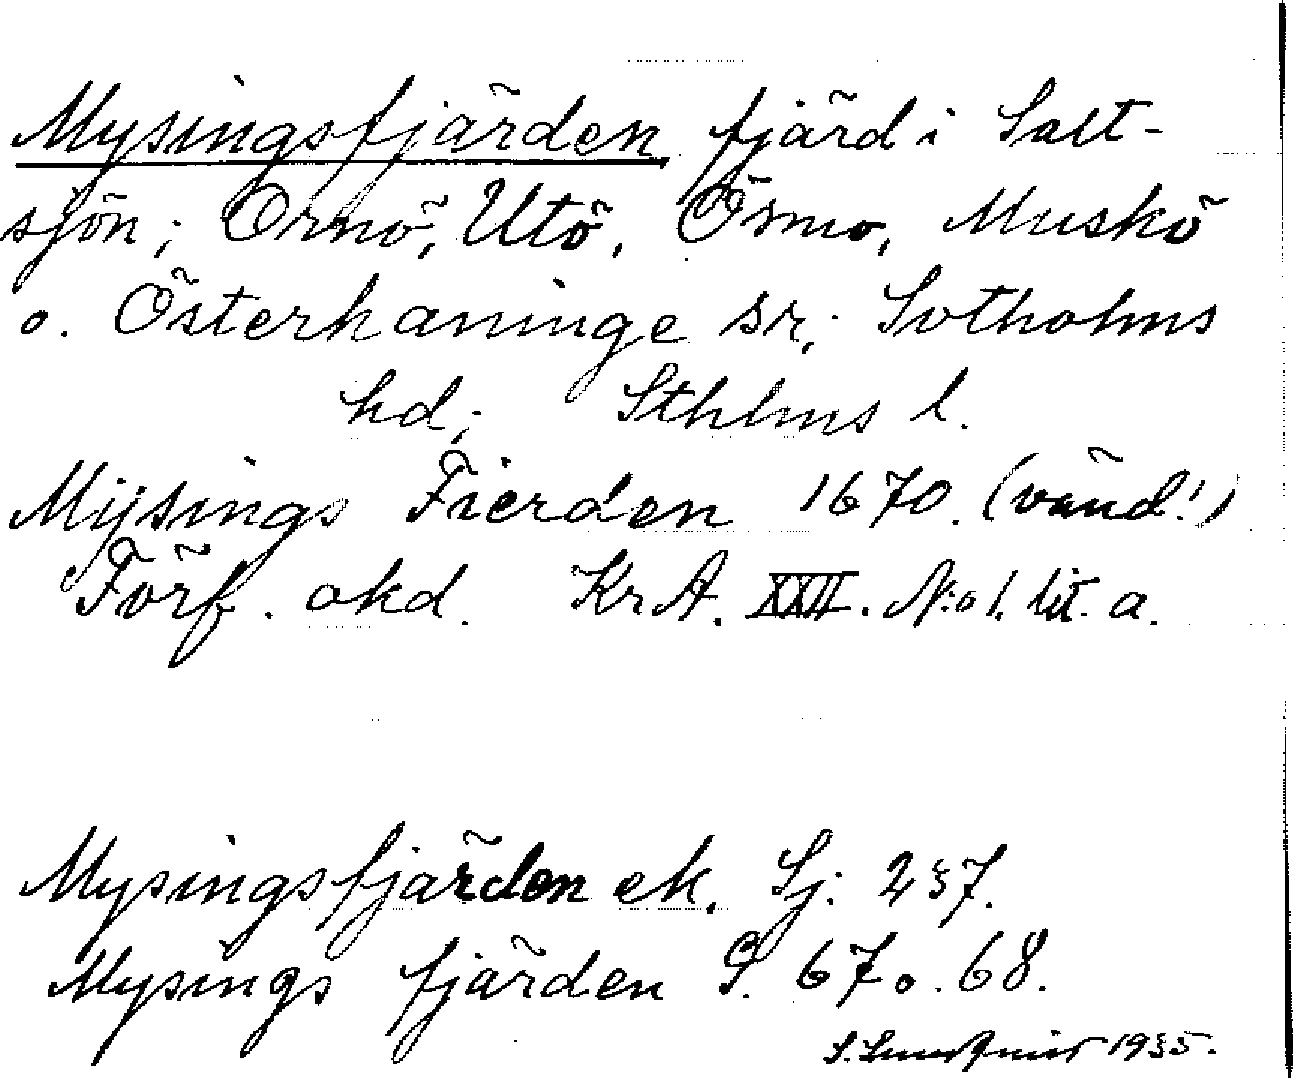 Mysingsfjärden fjärd i Salt-
sjön; Ornö, Utö, Ösmo, Muskö
o. Österhaninge sr; Sotholms
hd; Sthlms l.
Mijsings Fierden 1670. (vänd!)
Förf. okd. KrA. XXII. N:o 1. lit. a.
Mysingsfjärden ek. Sj: 237.
Mysings fjärden G. 67 o. 68.
S. 1935.